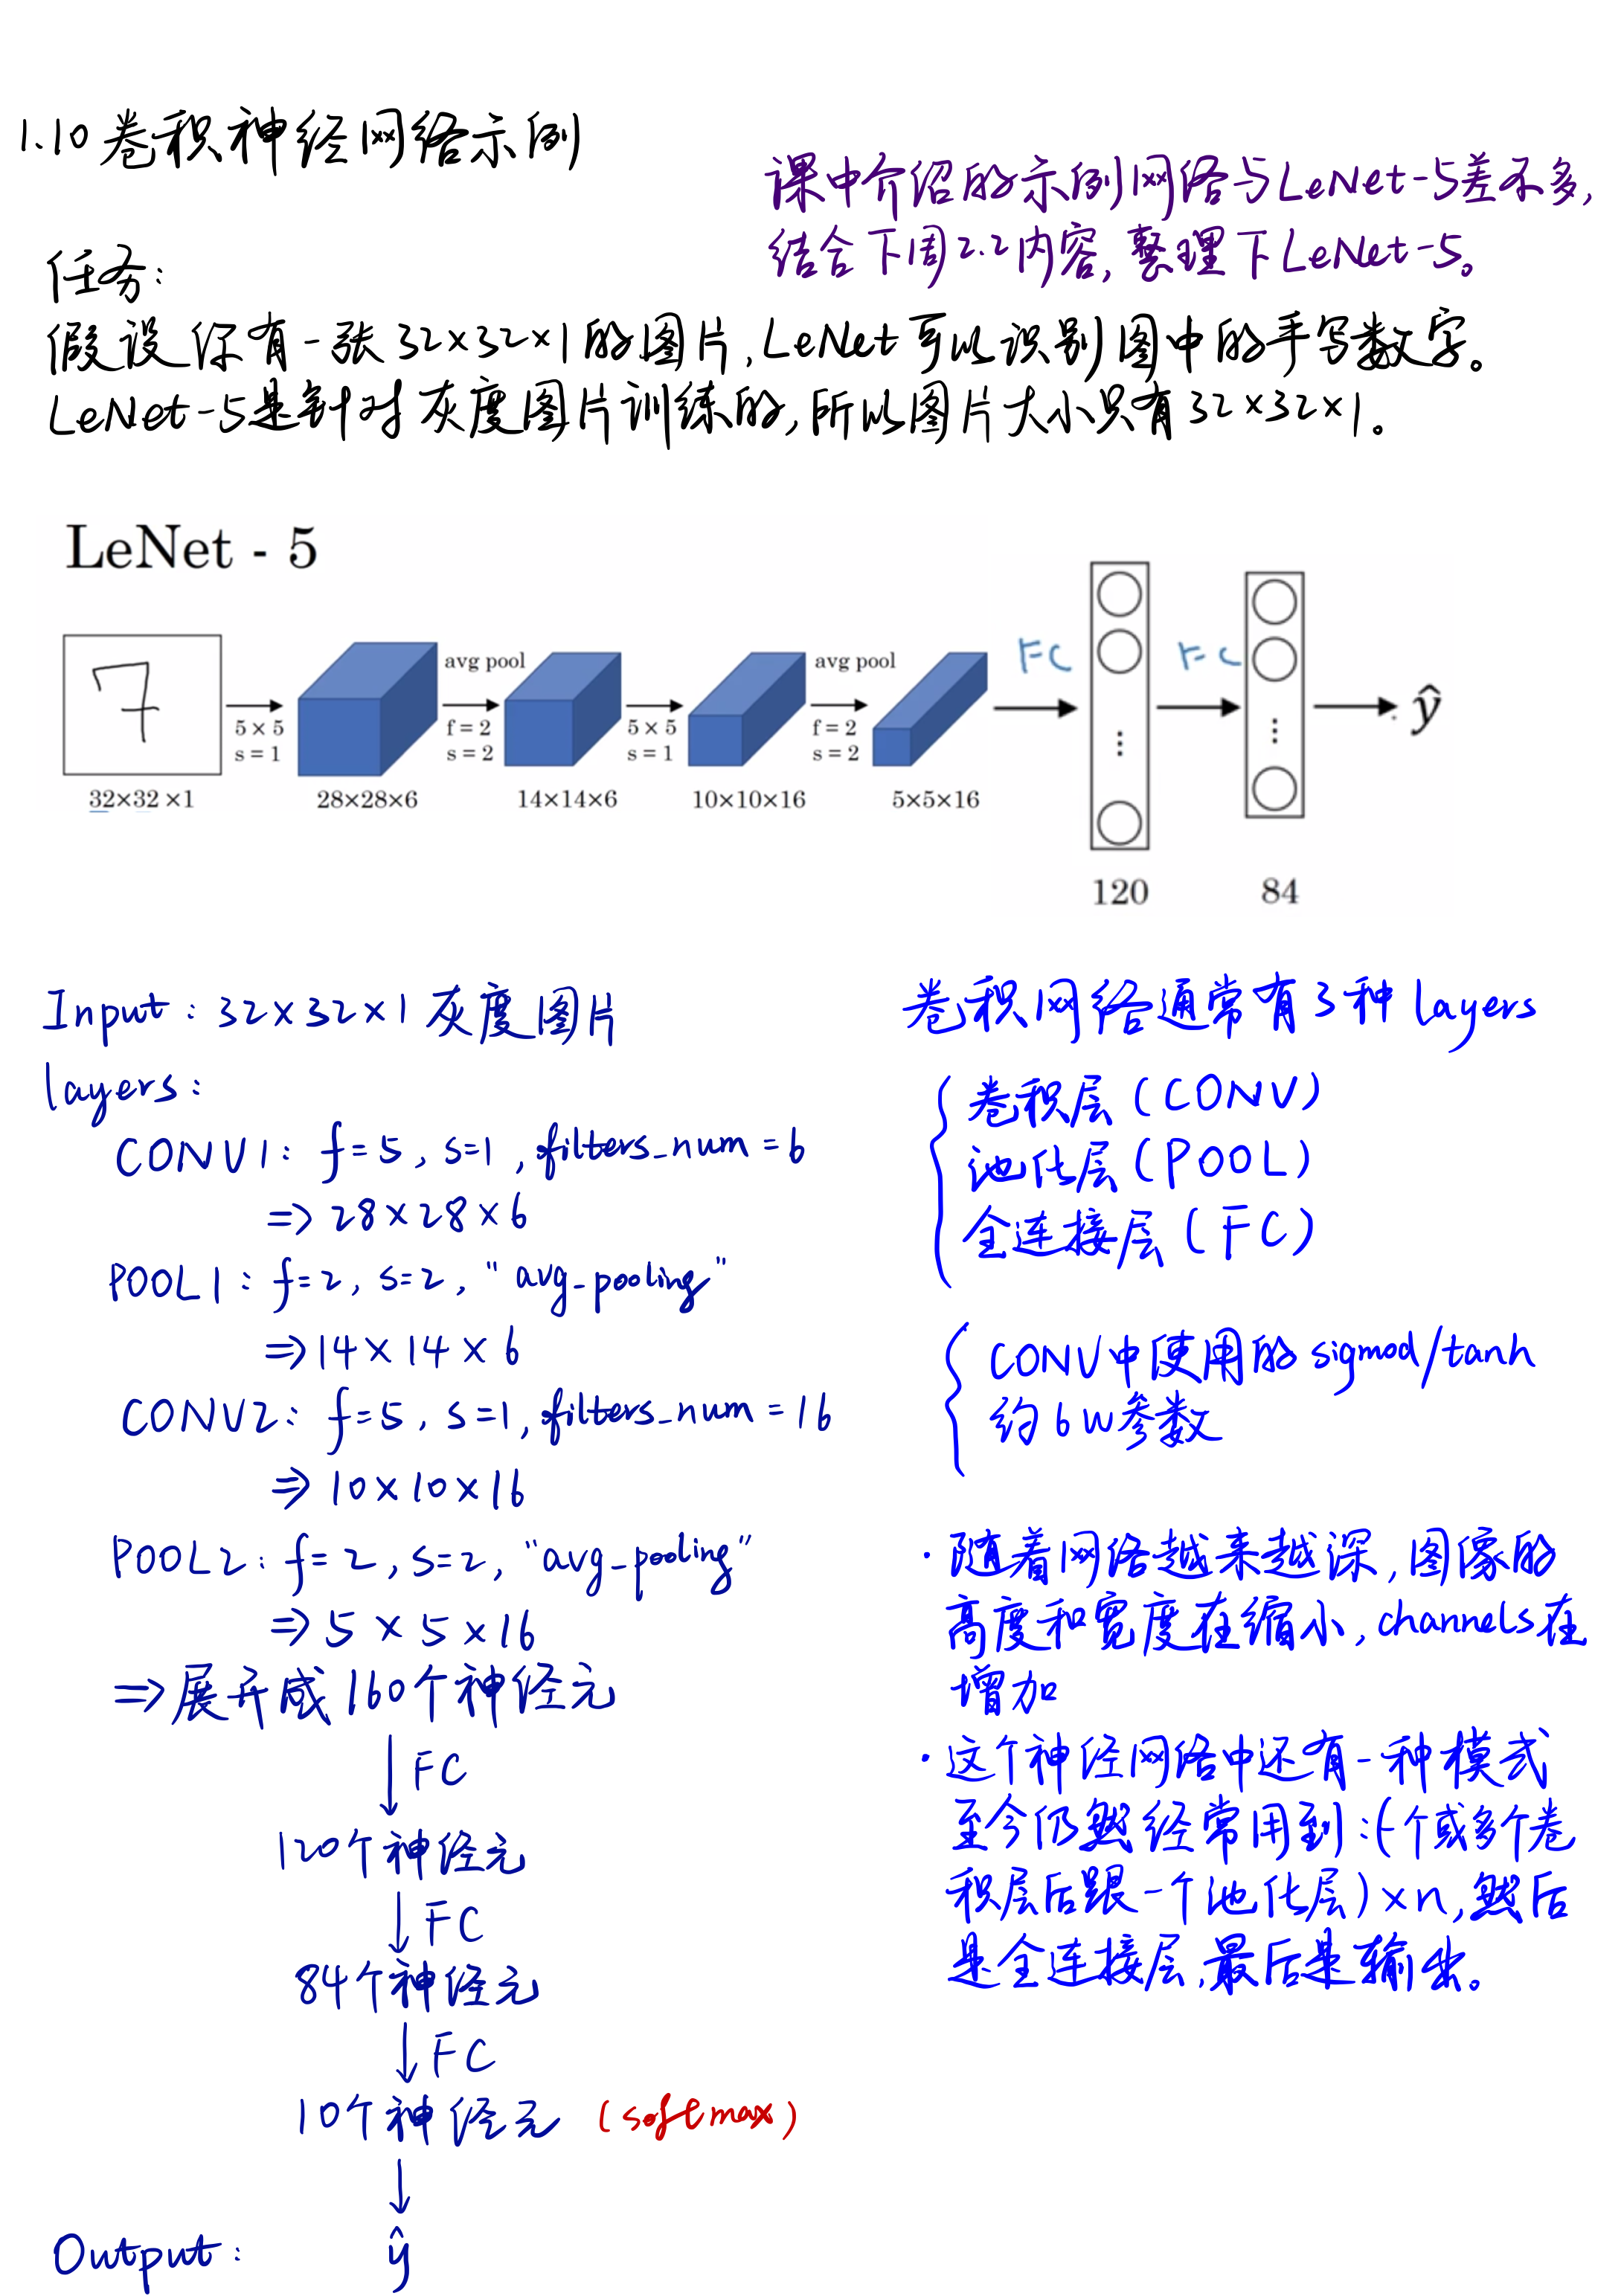 1.10 卷积神经网络示例
课中介绍的示例网络与LeNet-5差不多,
结合下周2.2内容,整理下LeNet-5。
任务:
假设你有一张32×32×1的图片,LeNet可以识别图中的手写数字。
LeNet-5是针对灰度图片训练的,所以图片大小只有32×32×1。
LeNet - 5
7
32×32×1
5 × 5
s = 1
28×28×6
avg pool
f = 2
s = 2
14×14×6
5 × 5
s = 1
10×10×16
avg pool
f = 2
s = 2
5×5×16
FC
⋮
120
FC
⋮
84
ŷ
Input: 32×32×1 灰度图片
layers:
CONV1: f=5, s=1, filters_num=6
=> 28×28×6
POOL1: f=2, s=2, "avg-pooling"
=> 14×14×6
CONV2: f=5, s=1, filters_num=16
=> 10×10×16
POOL2: f=2, s=2, "avg-pooling"
=> 5×5×16
=> 展开成160个神经元
↓ FC
120个神经元
↓ FC
84个神经元
↓ FC
10个神经元 (softmax)
↓
Output: ŷ
卷积网络通常有3种layers
卷积层(CONV)
池化层(POOL)
全连接层(FC)
CONV中使用的sigmod/tanh
约6w参数
· 随着网络越来越深,图像的
高度和宽度在缩小,channels在
增加
· 这个神经网络中还有一种模式
至今仍然经常用到:(一个或多个卷
积层后跟一个池化层)×n,然后
是全连接层,最后是输出。